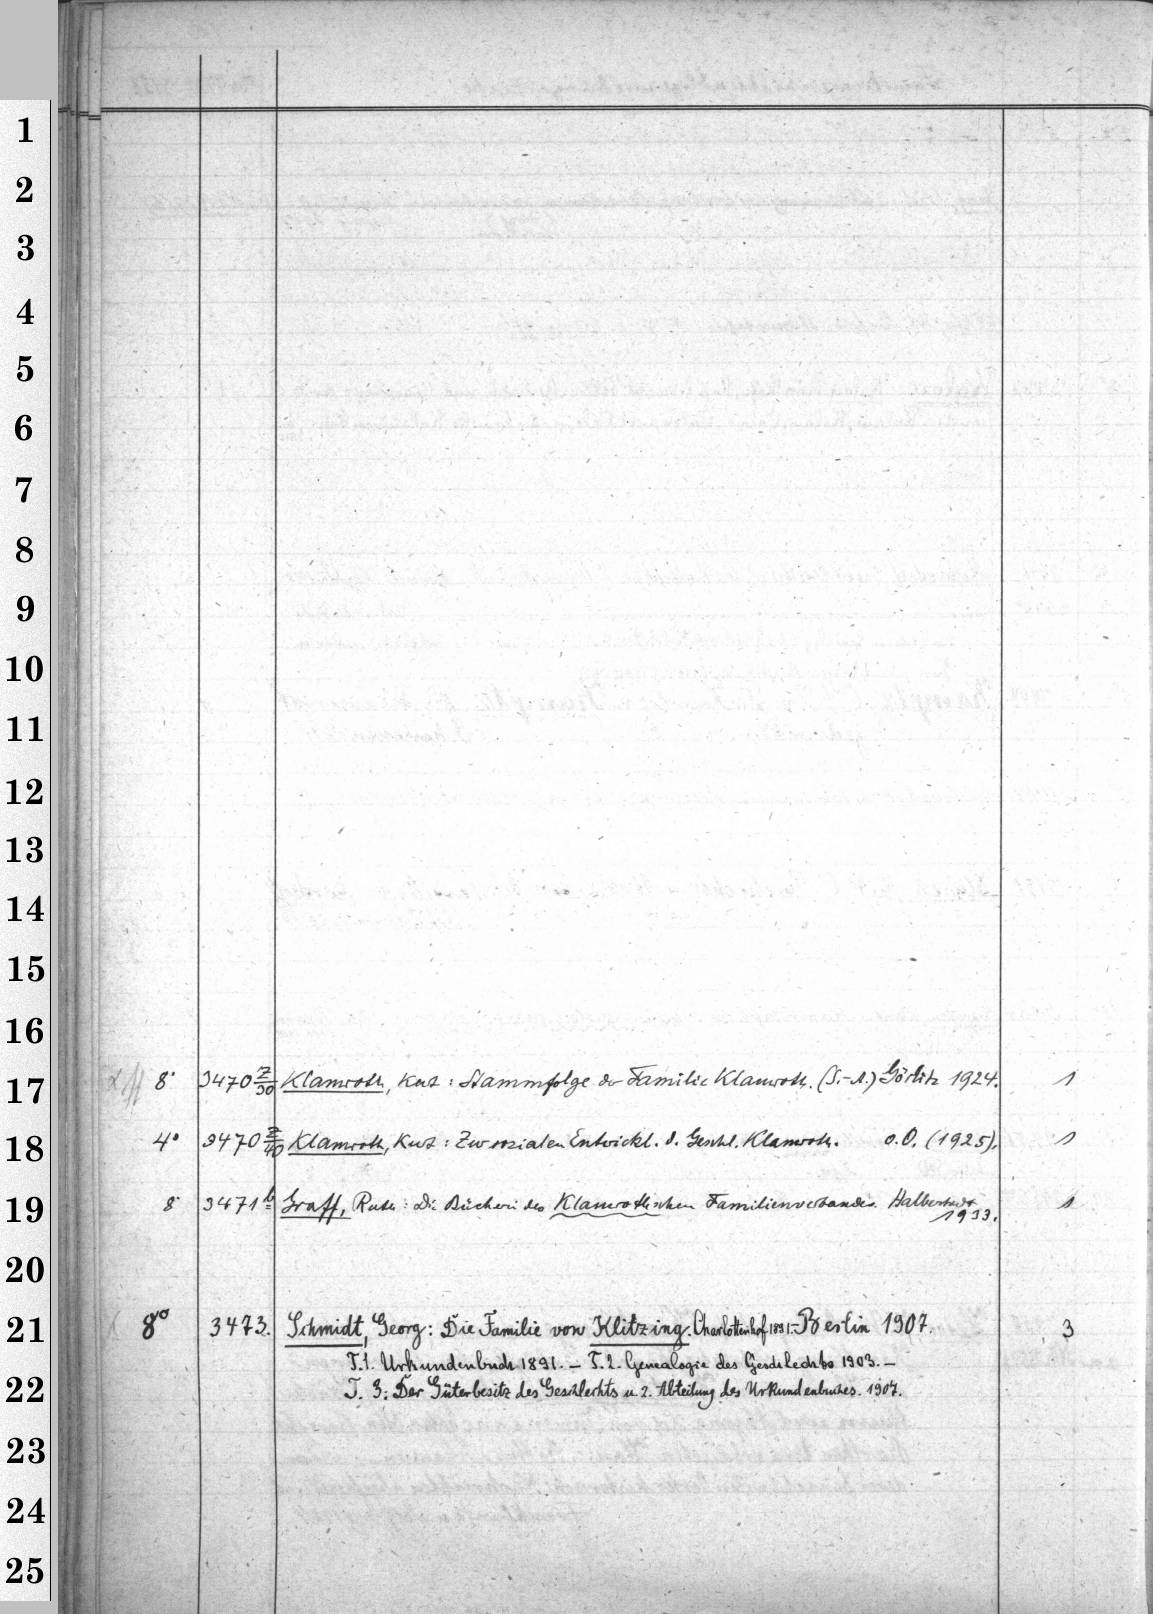 1
2
3
4
5
6
7
8
9
10
11
12
13
14
15
16
17 8° 3470 Z/30 Klamroth, Kurt: Stammfolge der Familie Klamroth. (S.-A.) Görlitz 1924. 1
18 4° 3470 Z/40 Klamroth, Kurt: Zur sozialen Entwickl. d. Geschl. Klamroth. o.O. (1925). 1
19 8° 3471 b Graff, Ruth: Die Bücherei des Klamrothschen Familienverbandes. Halberstadt 1933. 1
20
21 8° 3473. Schmidt, Georg: Die Familie von Klitzing. Charlottenhof 1891-Berlin 1907. 3
T.1. Urkundenbuch 1891. – T.2. Genealogie des Geschlechts 1903. –
22 T. 3: Der Güterbesitz des Geschlechts u. 2. Abteilung des Urkundenbuches. 1907.
23
24
25